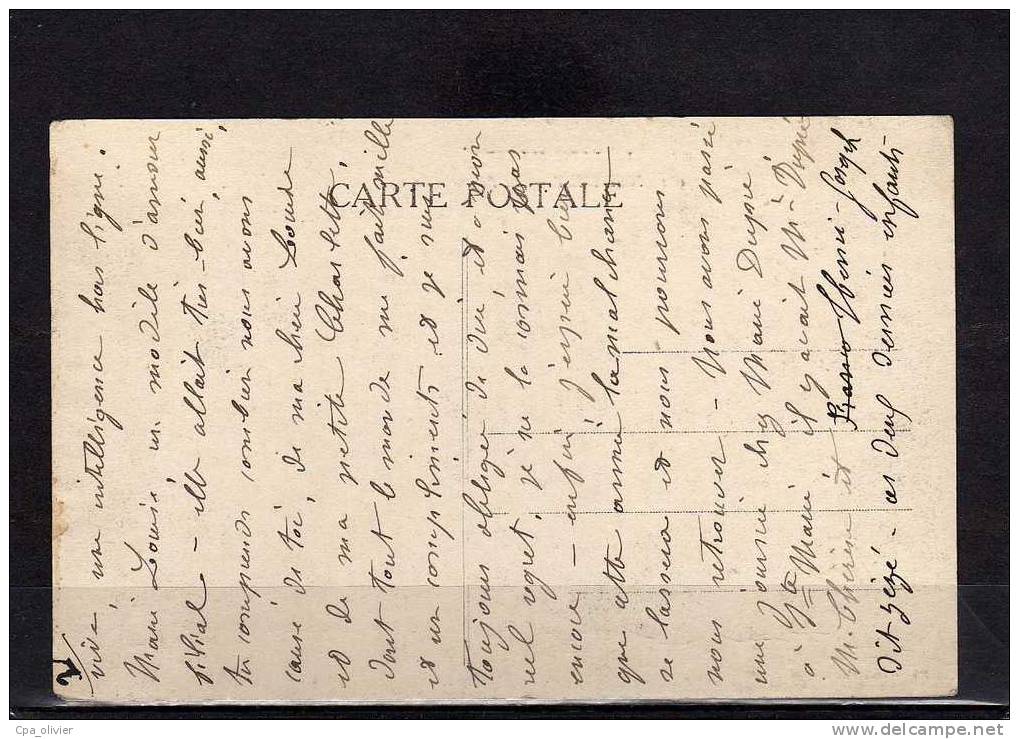 2/
vie, une intelligence hors ligne.
Marie Louise, un modèle d'amour
filial - elle allait très-bien, aussi,
tu comprends combien nous avons
causé de toi, de ma chère Loulou
et de ma petite Charlotte,
dont tout le monde me fait mille
et un compliments et je suis
toujours obligée de dire et à mon
réel regret, je ne la connais pas
encore - enfin j'espère bien
que cette année la malchance
se lassera et nous pourrons
nous retrouver - Nous avons passé
une journée chez Marie Dupré
à Ste Marie il y avait Mr Dupré
M. Thérèse et Henri-Joseph
dit Zézé - ces deux derniers enfants
CARTE POSTALE
Cpa_olivier
www.delcampe.net